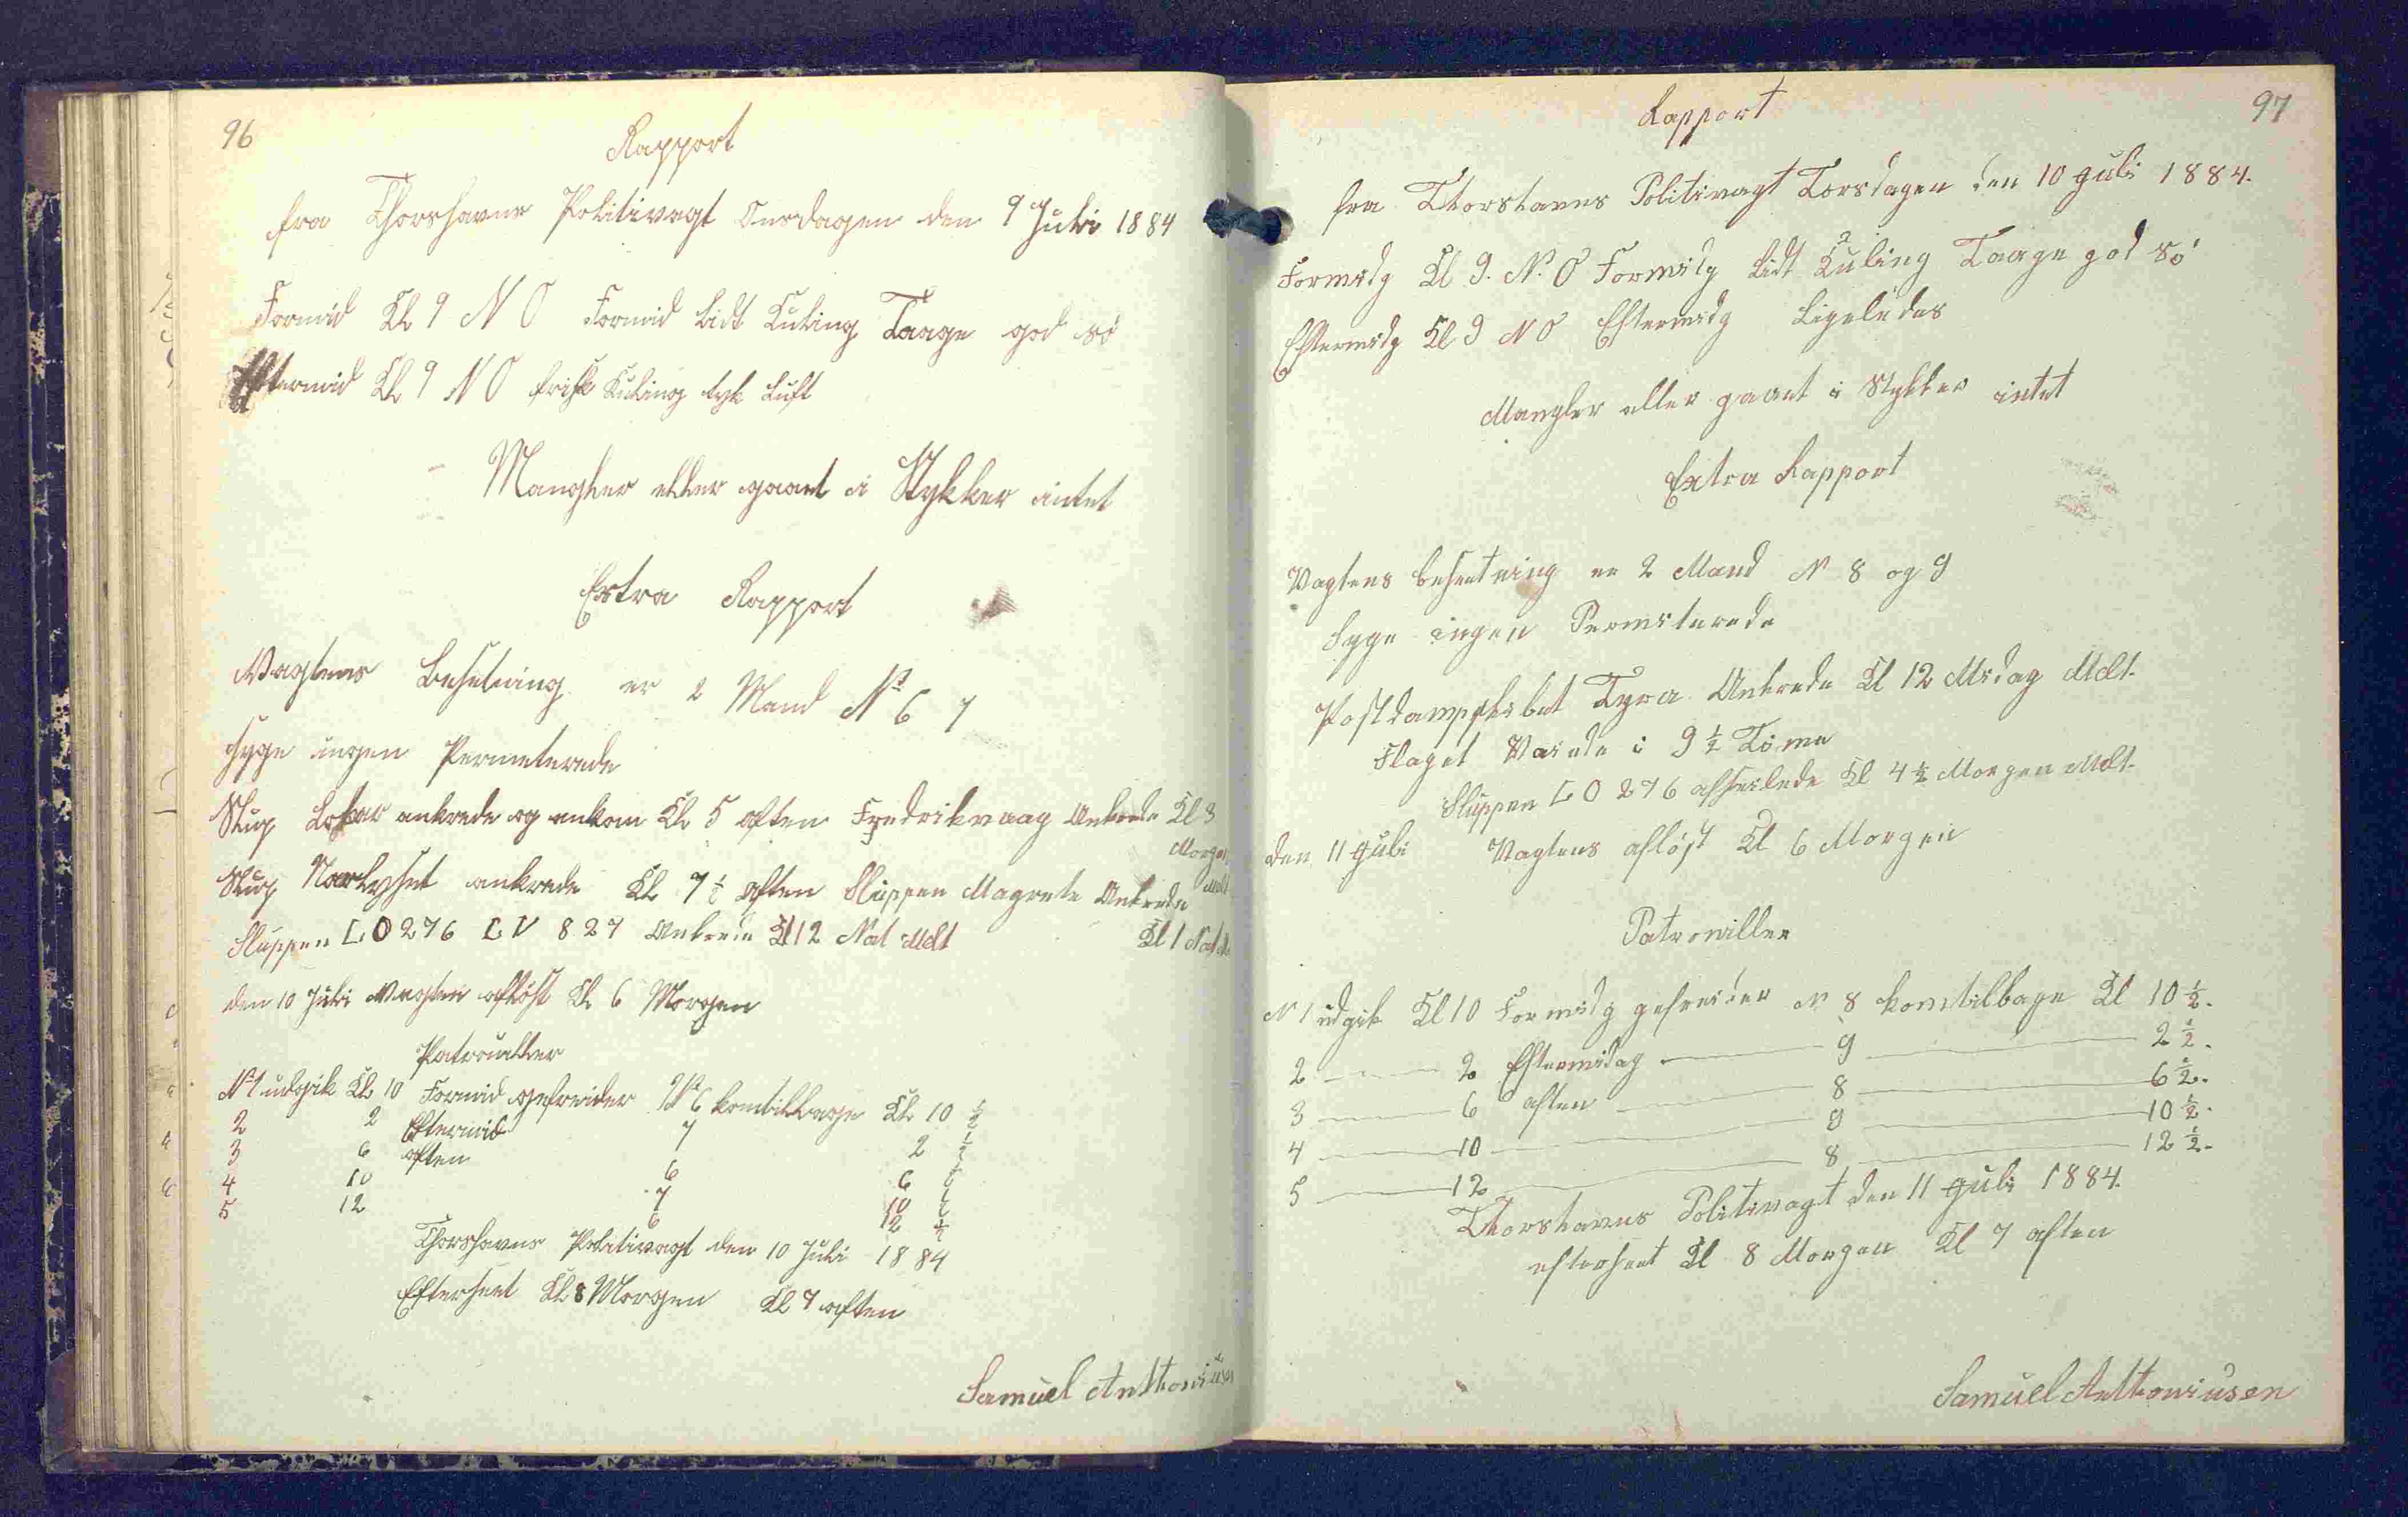 96
Rapport
fra Thorshavns Politivagt Onsdagen den 9 Juli 1884
Formid Kl 9 N O Formid lidt Kuling Taage god sö
Eftermid Kl 9 N O frisk Kuling tyk Luft
Mangler eller gaaet i Stykker intet
Extra Rapport
Vagtens Besetning er 2 Mand No 6 7
syge ingen Permeterede
Slup ankrede og ankom Kl 5 aften Fredrikvaag Ankrede Kl 3
Morgen
Slup Norlyset ankrede Kl 7 ½ aften Sluppen Magrete Ankrede Mdt
Sluppen L O 276 L V 827 Ankrede Kl 12 Nat Mdt Kl 1 Nat
den 10 Juli Vagten aflöst Kl 6 Morgen
Patrouiller
No 1 udgik Kl 10 Formid gefreider No 6 komtilbage Kl 10 ½
2 2 Eftermid 7 2 ½
3 6 aften 6 6 ½
4 10 7 10 ½
5 12 6 12 ½
Thorshavns Politivagt den 10 Juli 1884
Efterseet Kl 8 Morgen Kl 7 aften
Samuel Anthoniusen
97
Rapport
fra Thorshavns Politivagt Torsdagen den 10 Juli 1884.
Formidg Kl 9. N. O Formidg lidt Kuling Taage god sö
Eftermidg Kl 9 N O Eftermidg Ligeledes
Mangler eller gaaet i Stykker intet
Extra Rapport
Vagtens besentning er 2 Mand N 8 og 9
Syge ingen Permiterede
Postdampskibet Tyra Ankrede Kl 12 Midag Mdt.
Flaget Vaiede i 9 ½ Time
Sluppen L O 276 afseilede Kl 4 ½ Morgen Mdt.
den 11 Juli Vagtens aflöst Kl 6 Morgen
Patrouiller
N 1 udgik Kl 10 Formidg gefreider N 8 komtilbage Kl 10 ½.
2 2 Eftermidag 9 2 ½.
3 6 aften 8 6 ½.
4 10 9 10 ½.
5 12 8 12 ½.
Thorshavns Politivagt den 11 Juli 1884.
efterseet Kl 8 Morgen Kl 7 aften
Samuel Anthoniusen